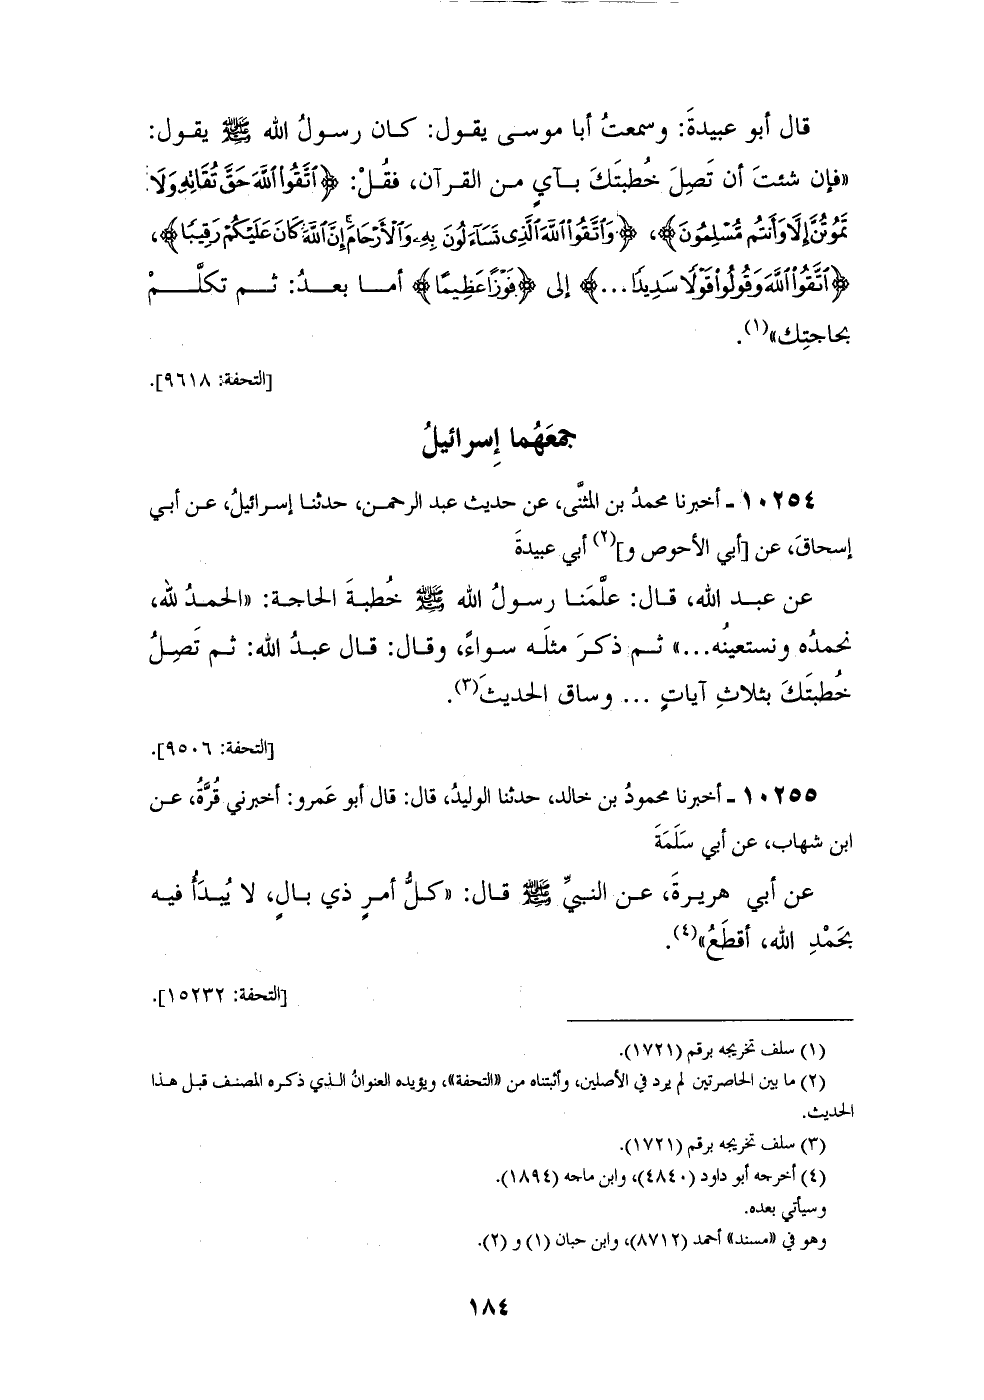 قال أبو عبيدةَ: وسمعتُ أبا موسى يقول: كان رسولُ الله ﷺ يقول:
«فإن شئتَ أن تَصِلَ خُطبتَكَ بـآيٍ من القرآن، فقُلْ: ﴿ٱتَّقُوا۟ ٱللَّهَ حَقَّ تُقَاتِهِۦ وَلَا
تَمُوتُنَّ إِلَّا وَأَنتُم مُّسْلِمُونَ﴾، ﴿وَٱتَّقُوا۟ ٱللَّهَ ٱلَّذِى تَسَآءَلُونَ بِهِۦ وَٱلْأَرْحَامَ ۚ إِنَّ ٱللَّهَ كَانَ عَلَيْكُمْ رَقِيبًا﴾،
﴿ٱتَّقُوا۟ ٱللَّهَ وَقُولُوا۟ قَوْلًا سَدِيدًا...﴾ إلى ﴿فَوْزًا عَظِيمًا﴾ أما بعدُ: ثم تكلَّمْ
بحاجتِك»(١).
[التحفة: ٩٦١٨].
جمعَهُما إسرائيلُ
١٠٢٥٤ ـ أخبرنا محمدُ بن المثنَّى، عن حديث عبد الرحمن، حدثنا إسرائيلُ، عن أبي
إسحاقَ، عن [أبي الأحوص و](٢) أبي عبيدةَ
عن عبد الله، قال: علَّمَنا رسولُ الله ﷺ خُطبةَ الحاجة: «الحمدُ لله،
نحمدُه ونستعينُه...» ثم ذكرَ مثلَه سواءً، وقال: قال عبدُ الله: ثم تَصِلُ
خُطبتَكَ بثلاثِ آياتٍ ... وساق الحديثَ(٣).
[التحفة: ٩٥٠٦].
١٠٢٥٥ ـ أخبرنا محمودُ بن خالد، حدثنا الوليدُ، قال: قال أبو عَمرو: أخبرني قُرَّةُ، عن
ابن شهاب، عن أبي سَلَمَةَ
عن أبي هريرةَ، عن النبيِّ ﷺ قال: «كلُّ أمرٍ ذي بالٍ، لا يُبدَأُ فيه
بحَمْدِ الله، أقطَعُ»(٤).
[التحفة: ١٥٢٣٢].
(١) سلف تخريجه برقم (١٧٢١).
(٢) ما بين الحاصرتين لم يرد في الأصلين، وأثبتناه من «التحفة»، ويؤيده العنوانُ الذي ذكره المصنف قبل هذا
الحديث.
(٣) سلف تخريجه برقم (١٧٢١).
(٤) أخرجه أبو داود (٤٨٤٠)، وابن ماجه (١٨٩٤).
وسيأتي بعده.
وهو في «مسند» أحمد (٨٧١٢)، وابن حبان (١) و (٢).
١٨٤